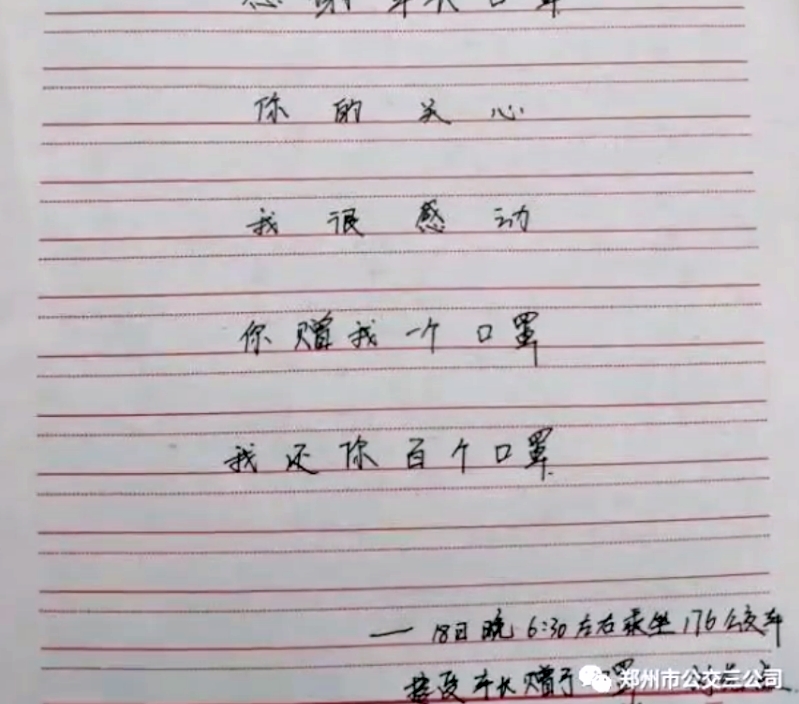 感谢车长口罩
你的关心
我很感动
你赠我一个口罩
我还你百个口罩
—— 18日晚6:30左右乘坐176公交车
接受车长赠予口罩
郑州市公交三公司